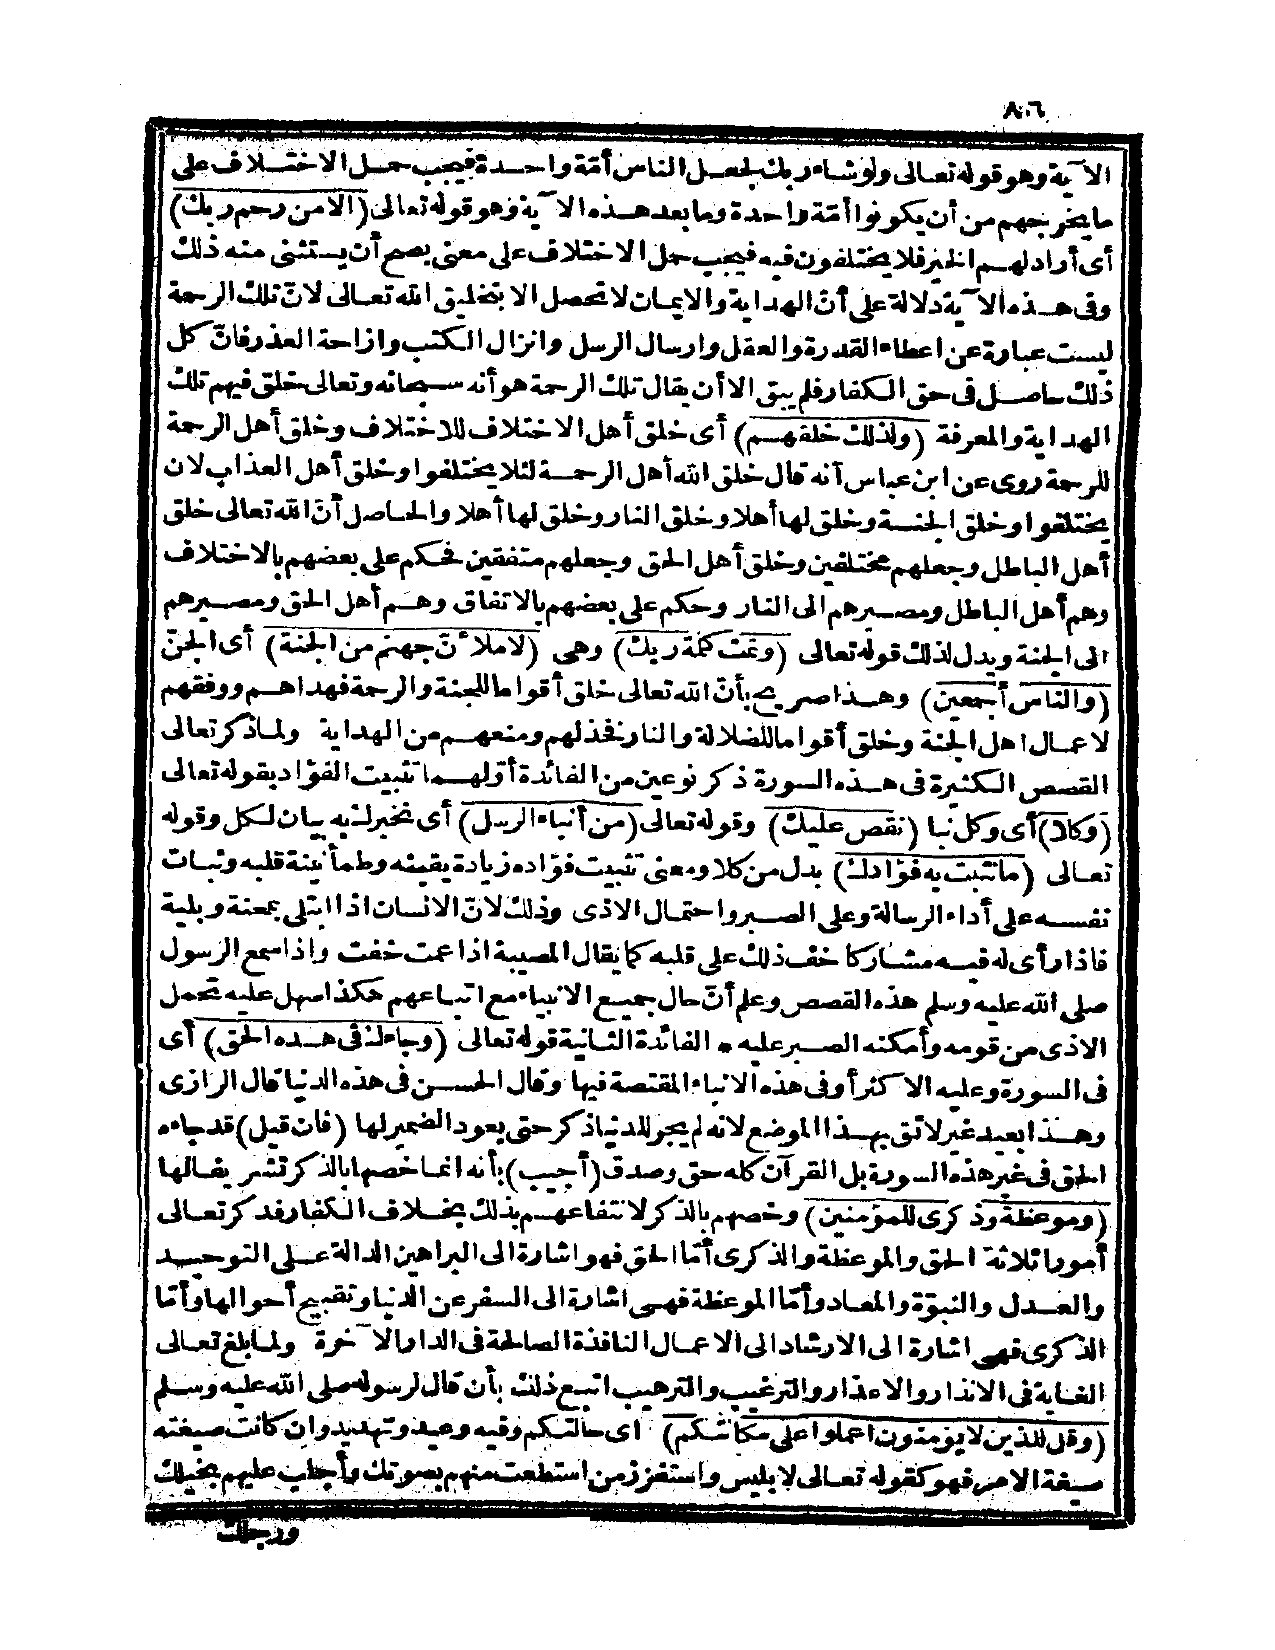 ٨٠٦
الآية وهو قوله تعالى ولو شاء ربك لجعل الناس أمّة واحدة فيجب حمل الاختلاف على
ما يخرجهم من أن يكونوا أمّة واحدة وما بعد هذه الآية وهو قوله تعالى (الا من رحم ربك)
أى أراد لهم الخير فلا يختلفون فيه فيجب حمل الاختلاف على معنى يصح أن يستثنى منه ذلك
وفى هذه الآية دلالة على أنّ الهداية والايمان لا تحصل الا بتخليق الله تعالى لانّ تلك الرحمة
ليست عبارة عن اعطاء القدرة والعقل وارسال الرسل وانزال الكتب وازاحة العذر فانّ كل
ذلك حاصل فى حق الكفار فلم يبق الا أن يقال تلك الرحمة هو أنه سبحانه وتعالى خلق فيهم تلك
الهداية والمعرفة (ولذلك خلقهم) أى خلق أهل الاختلاف للاختلاف وخلق أهل الرحمة
للرحمة روى عن ابن عباس أنه قال خلق الله أهل الرحمة لئلا يختلفوا وخلق أهل العذاب لان
يختلفوا وخلق الجنة وخلق لها أهلا وخلق النار وخلق لها أهلا والحاصل أنّ الله تعالى خلق
أهل الباطل وجعلهم مختلفين وخلق أهل الحق وجعلهم متفقين فحكم على بعضهم بالاختلاف
وهم أهل الباطل ومصيرهم الى النار وحكم على بعضهم بالاتفاق وهم أهل الحق ومصيرهم
الى الجنة ويدل لذلك قوله تعالى (وتمت كلمة ربك) وهى (لاملأنّ جهنم من الجنة) أى الجنّ
(والناس أجمعين) وهذا صريح بأنّ الله تعالى خلق أقواما للجنة والرحمة فهداهم ووفقهم
لاعمال اهل الجنة وخلق أقواما للضلالة والنار فخذلهم ومنعهم من الهداية ولما ذكر تعالى
القصص الكثيرة فى هذه السورة ذكر نوعين من الفائدة أوّلهما تثبيت الفؤاد بقوله تعالى
(وكلا) أى وكل نبا (نقص عليك) وقوله تعالى (من أنباء الرسل) أى نخبرك به بيان لكل وقوله
تعالى (ما نثبت به فؤادك) بدل من كلا ومعنى تثبيت فؤاده زيادة يقينه وطمأنينة قلبه وثبات
نفسه على أداء الرسالة وعلى الصبر واحتمال الاذى وذلك لانّ الانسان اذا ابتلى بمحنة وبلية
فاذا رأى له فيه مشاركا خف ذلك على قلبه كما يقال المصيبة اذا عمت خفت واذا سمع الرسول
صلى الله عليه وسلم هذه القصص وعلم أنّ حال جميع الانبياء مع اتباعهم هكذا سهل عليه تحمل
الاذى من قومه وأمكنه الصبر عليه * الفائدة الثانية قوله تعالى (وجاءك فى هذه الحق) أى
فى السورة وعليه الاكثر أو فى هذه الانباء المقتصة فيها وقال الحسن فى هذه الدنيا قال الرازى
وهذا بعيد غير لائق بهذا الموضع لانه لم يجر للدنيا ذكر حتى يعود الضمير لها (فان قيل) قد جاءه
الحق فى غير هذه السورة بل القرآن كله حق وصدق (أجيب) بأنه انما خصها بالذكر تشريفا لها
(وموعظة وذكرى للمؤمنين) وخصهم بالذكر لانتفاعهم بذلك بخلاف الكفار فذكر تعالى
أمورا ثلاثة الحق والموعظة والذكرى أمّا الحق فهو اشارة الى البراهين الدالة على التوحيد
والعدل والنبوّة والمعاد وأمّا الموعظة فهى اشارة الى السفر عن الدنيا وتقبيح أحوالها وأمّا
الذكرى فهى اشارة الى الارشاد الى الاعمال النافذة الصالحة فى الدار الآخرة ولما بلغ تعالى
الغاية فى الانذار والاعذار والترغيب والترهيب اتبع ذلك بأن قال لرسوله صلى الله عليه وسلم
(وقل للذين لا يؤمنون اعملوا على مكانتكم) اى حالتكم وفيه وعيد وتهديد وان كانت صيغته
صيغة الامر فهو كقوله تعالى لابليس واستفزز من استطعت منهم بصوتك وأجلب عليهم بخيلك
ورجلك